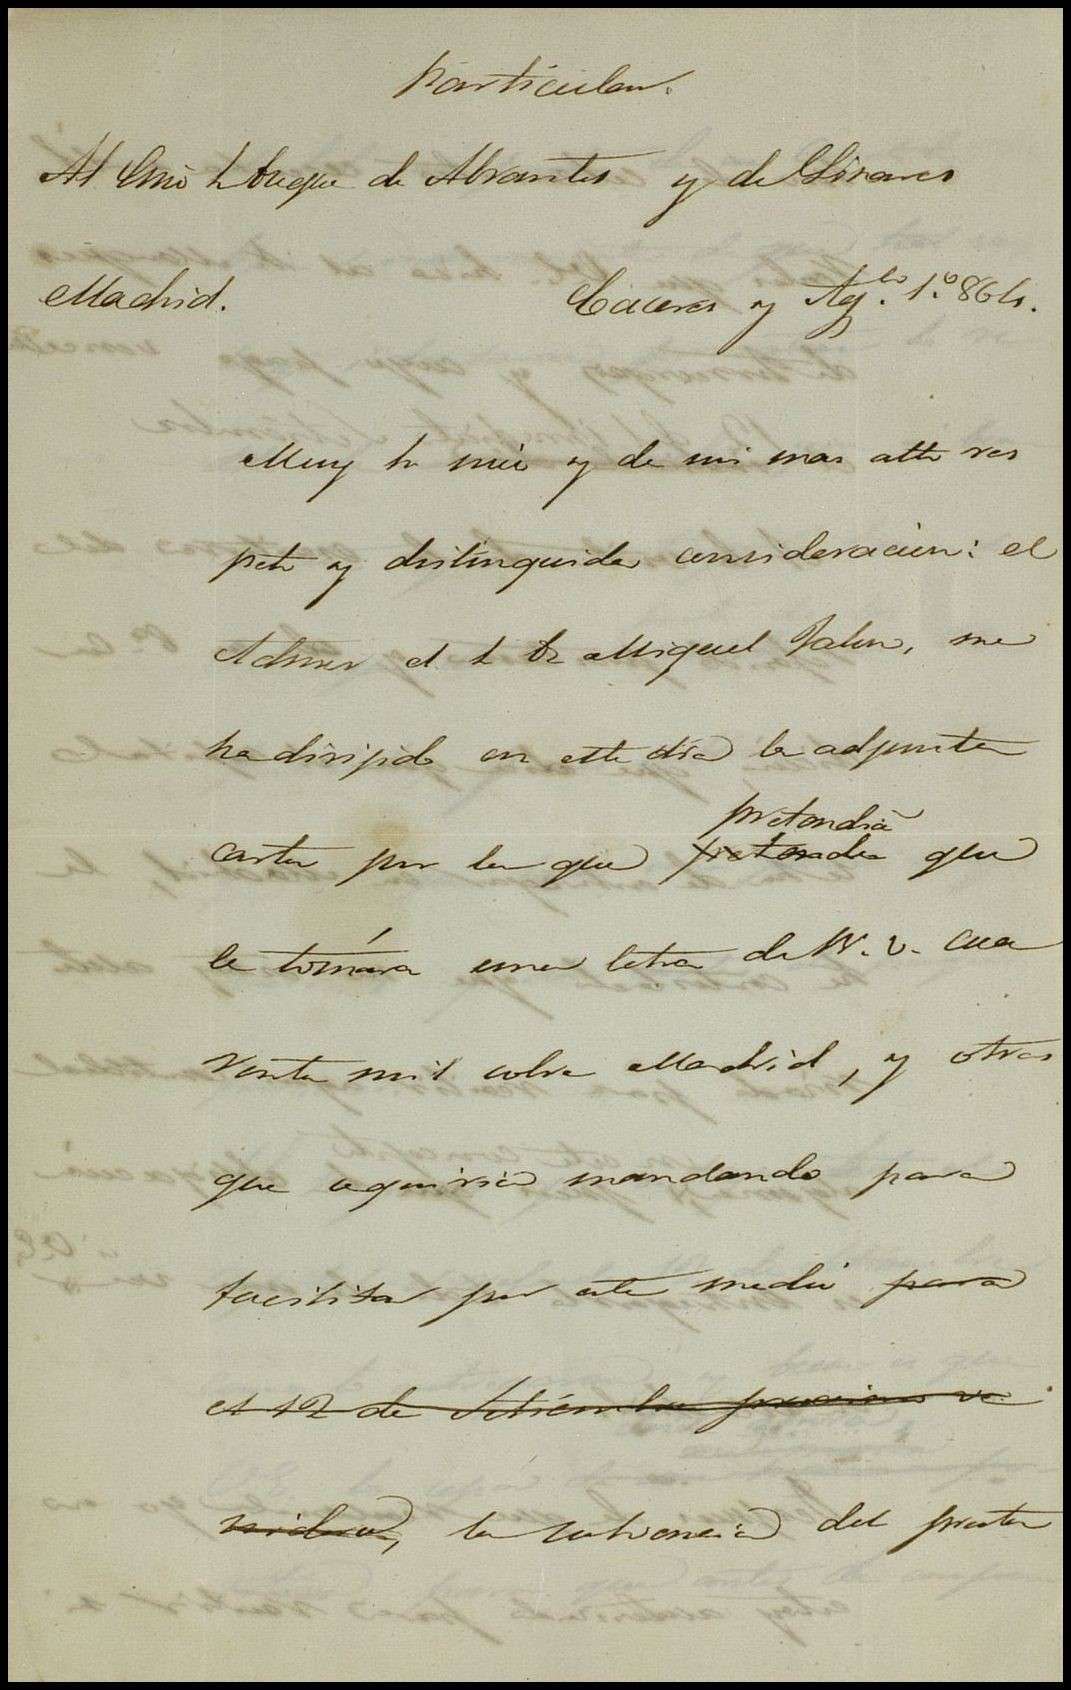 Particular.
Al Exmo Sr Duque de Abrantes y de Linares
Madrid. Caceres y Agto. 1.º 864.
Muy Sr mio y de mi mas atto res
peto y distinguida consideracion: el
Admor el Sr Dn Miguel Jalon, me
ha dirijido en este dia la adjunta
pretendia
carta por la que pretendia que
le tomára una letra de R. v. cua
renta mil sobre Madrid, y otras
que seguiria mandando para
facilitar por este medio para
el 12 de Setiembre proximo ve
nidero, la solvencia del presta